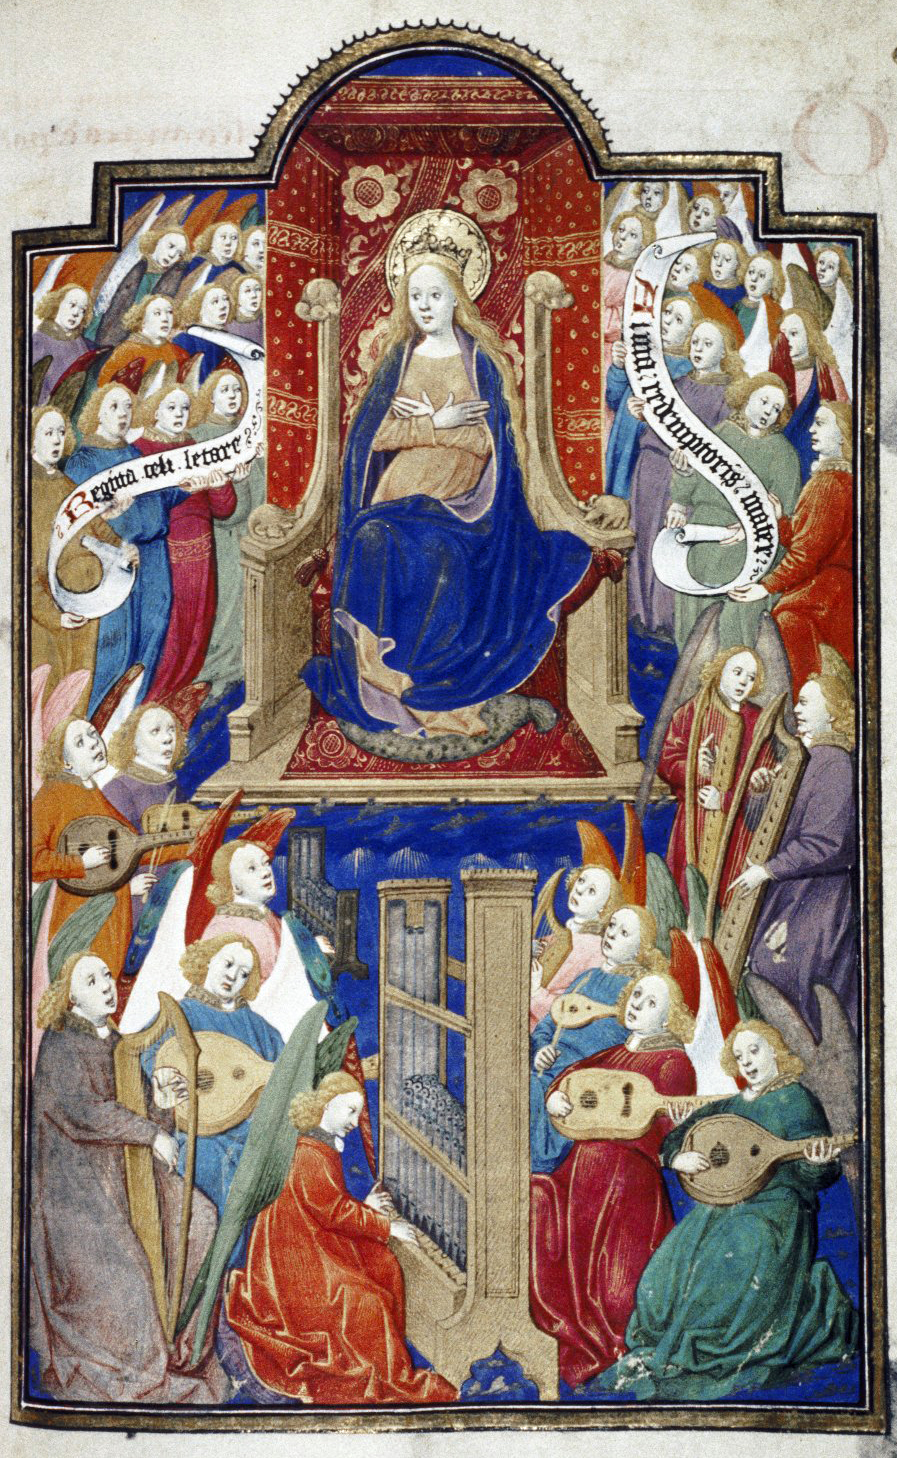 Regina. celi. letare.
Alma. redemptoris. mater.